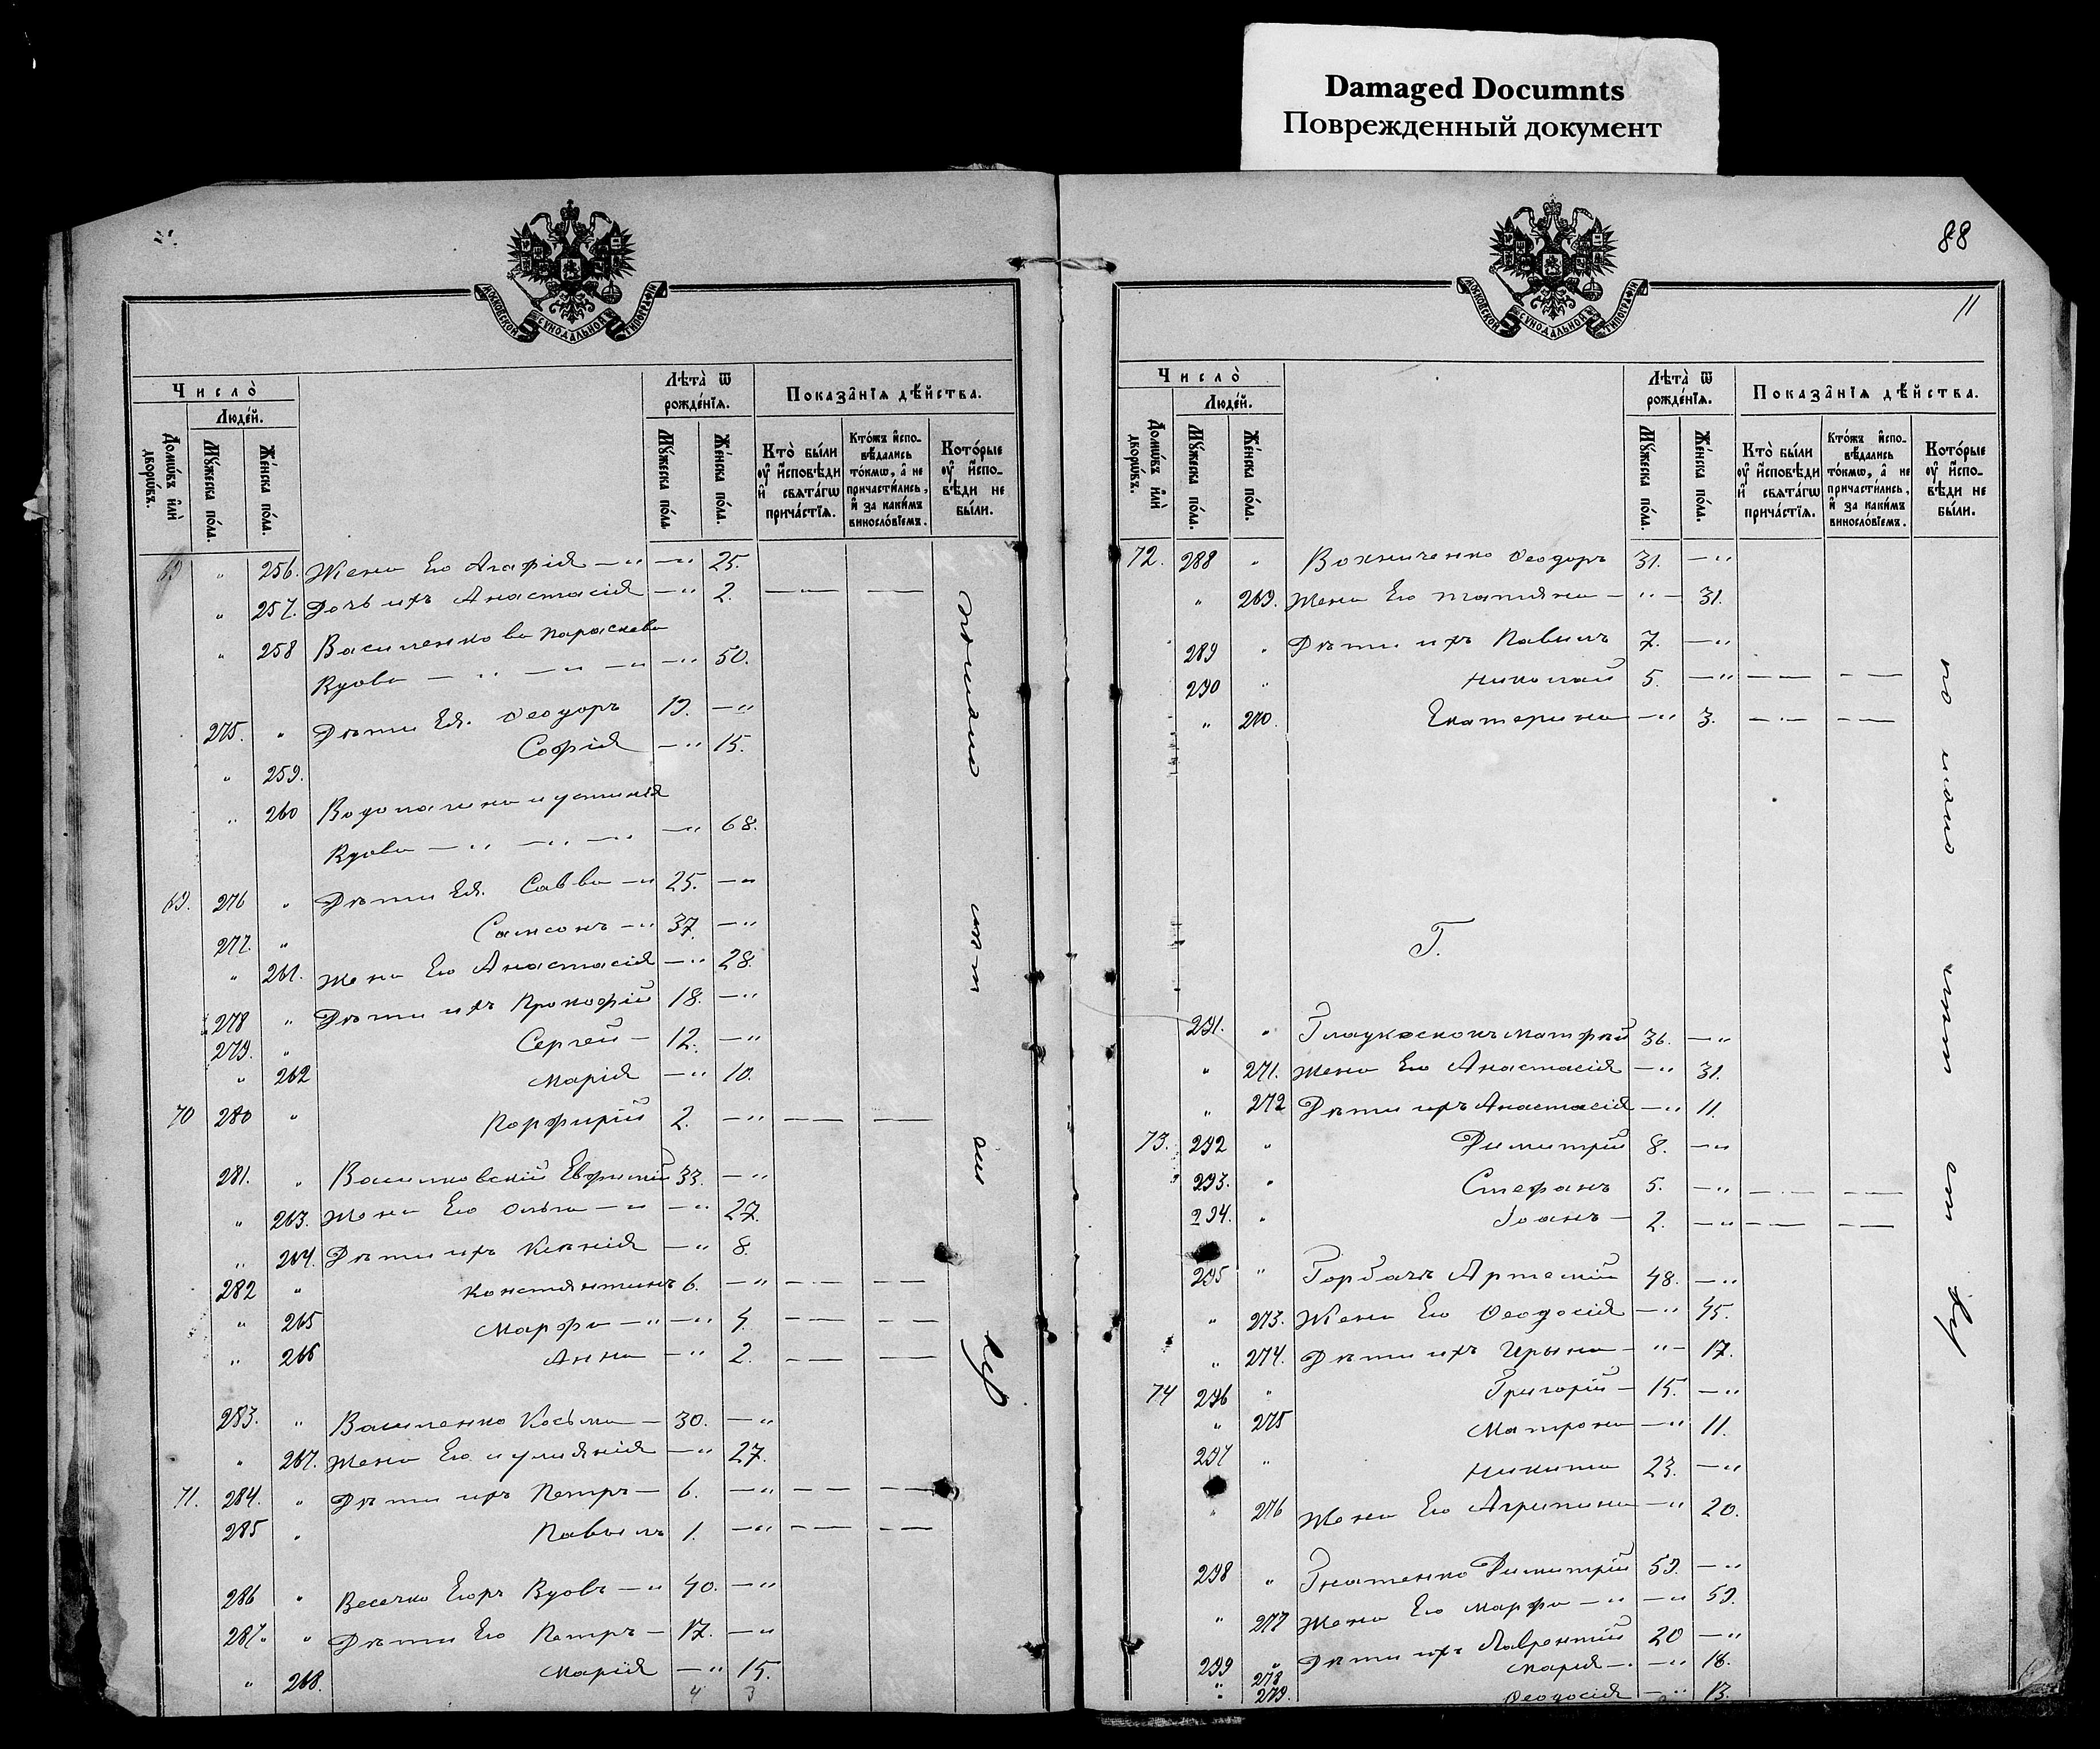 Damaged Documnts
Поврежденный документ
МОСКОВСКОЙ СѴНОДАЛЬНОЙ ТИПОГРАФІИ
Число̀
Людéй.
Домѡ́въ и҆лѝ дворѡ́въ.
Мꙋ́жеска по́ла.
Же́нска по́ла.
Лѣта̀ ѿ рожде́нїѧ.
Мꙋ́жеска по́ла.
Же́нска по́ла.
Показа̑нїѧ дѣ́йства.
Кто̀ бы́ли оу҆ и҆́сповѣди и҆ свѧта́гѡ прича́стїѧ.
Кто́жъ и҆спо-вѣ́дались то́кмѡ, а҆ не причасти́лись, и҆ за каки́мъ винослов́їемъ.
Кото́рые оу҆ и҆́спо-вѣди не бы́ли.
" 256. Жена Его Агафія — " — " 25.
" 257. Дочь ихъ Анастасія — " 2. — " — —
" 258 Василенкова Параскева
Вдова — " — " — " — " 50.
275. " Дѣти Ея. Ѳеодоръ 19. — "
" 259. Софія — " 15.
" 260 Водолагина Иустинія
Вдова — " — " — " — " 68.
69. 276 " Дѣти Ея. Савва — " 25. — "
277. " Самсонъ — " 37. — "
" 261. Жена Его Анастасія — " 28.
278 " Дѣти ихъ Прокофій 18. — "
279. " Сергей — 12. — "
" 262 Марія — " 10.
70 280 " Порфирій 2. — " — — —
281. " Василковскій Евфимій 33. — "
" 263. Жена Его Ольга — " — " 27.
" 264. Дѣти ихъ Ксенія — " 8.
282 " Константинъ 6. — " — — —
" 265 Марфа — " — " 4. — — — —
" 266 Анна — " 2. — — —
283. " Василенко Косьма — 30. — "
" 267. Жена Его Иуліанія — " 27.
71. 284. " Дѣти ихъ Петръ — 6. — " — — —
285 " Павелъ 1. — " — — — —
286 " Весечко Егоръ Вдовъ — " 40. — "
287. " Дѣти Его Петръ — 17. — "
" 268. Марія — " 15.
4 3
88
11
МОСКОВСКОЙ СѴНОДАЛЬНОЙ ТИПОГРАФІИ
Число̀
Людéй.
Домѡ́въ и҆лѝ дворѡ́въ.
Мꙋ́жеска по́ла.
Же́нска по́ла.
Лѣта̀ ѿ рожде́нїѧ.
Мꙋ́жеска по́ла.
Же́нска по́ла.
Показа̑нїѧ дѣ́йства.
Кто̀ бы́ли оу҆ и҆́сповѣди и҆ свѧта́гѡ прича́стїѧ.
Кто́жъ и҆спо-вѣ́дались то́кмѡ, а҆ не причасти́лись, и҆ за каки́мъ винослов́їемъ.
Кото́рые оу҆ и҆́спо-вѣди не бы́ли.
72. 288 " Вохниченко Ѳеодоръ 31. — "
" 269. Жена Его Татіяна — " — 31.
289 " Дѣти ихъ Павелъ 7. — "
290 " Николай 5. — " — — — —
" 270. Екатерина — " 3. — — — —
Г.
291. " Матфей 36. — "
" 271. Жена Его Анастасія — " 31.
" 272 Дѣти ихъ Анастасія — " 11.
73. 292 " Димитрій 8. — "
293. " Стефанъ 5. — " — — — —
294. " Іоанъ — 2. — " — — — —
295 " Горбачъ Артемій 48. — "
" 273. Жена Его Ѳеодосія — " 45.
" 274. Дѣти ихъ Ирына — " — 17.
74 296 " Григорій — 15. — "
" 275 Матрона — " 11.
297 " Никита 23. — "
" 276 Жена Его Агрипина — " 20.
298 " Гнатенко Димитрій 59. — "
" 277 Жена Его Марфа — " — " 59.
299 " Дѣти ихъ Лаврентій 20 — "
" 278 Марія — " — " 18.
" 279. Ѳеодосія — " 13.